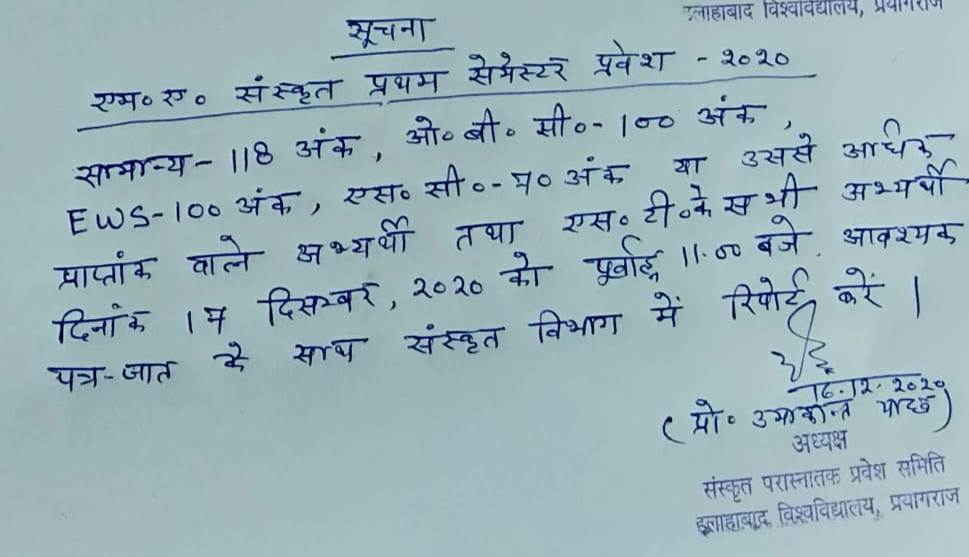 इलाहाबाद विश्वविद्यालय, प्रयागराज
सूचना
एम० ए० संस्कृत प्रथम सेमेस्टर प्रवेश - २०२०
सामान्य - 118 अंक, ओ० बी० सी० - 100 अंक,
EWS-100 अंक, एस० सी० - ७० अंक या उससे अधिक
प्राप्तांक वाले अभ्यर्थी तथा एस० टी० के सभी अभ्यर्थी
दिनांक 17 दिसम्बर, २०२० को पूर्वाह्न 11.00 बजे आवश्यक
पत्र-जात के साथ संस्कृत विभाग में रिपोर्ट करें।
16.12.2020
(प्रो० उमाकान्त यादव)
अध्यक्ष
संस्कृत परास्नातक प्रवेश समिति
इलाहाबाद विश्वविद्यालय, प्रयागराज